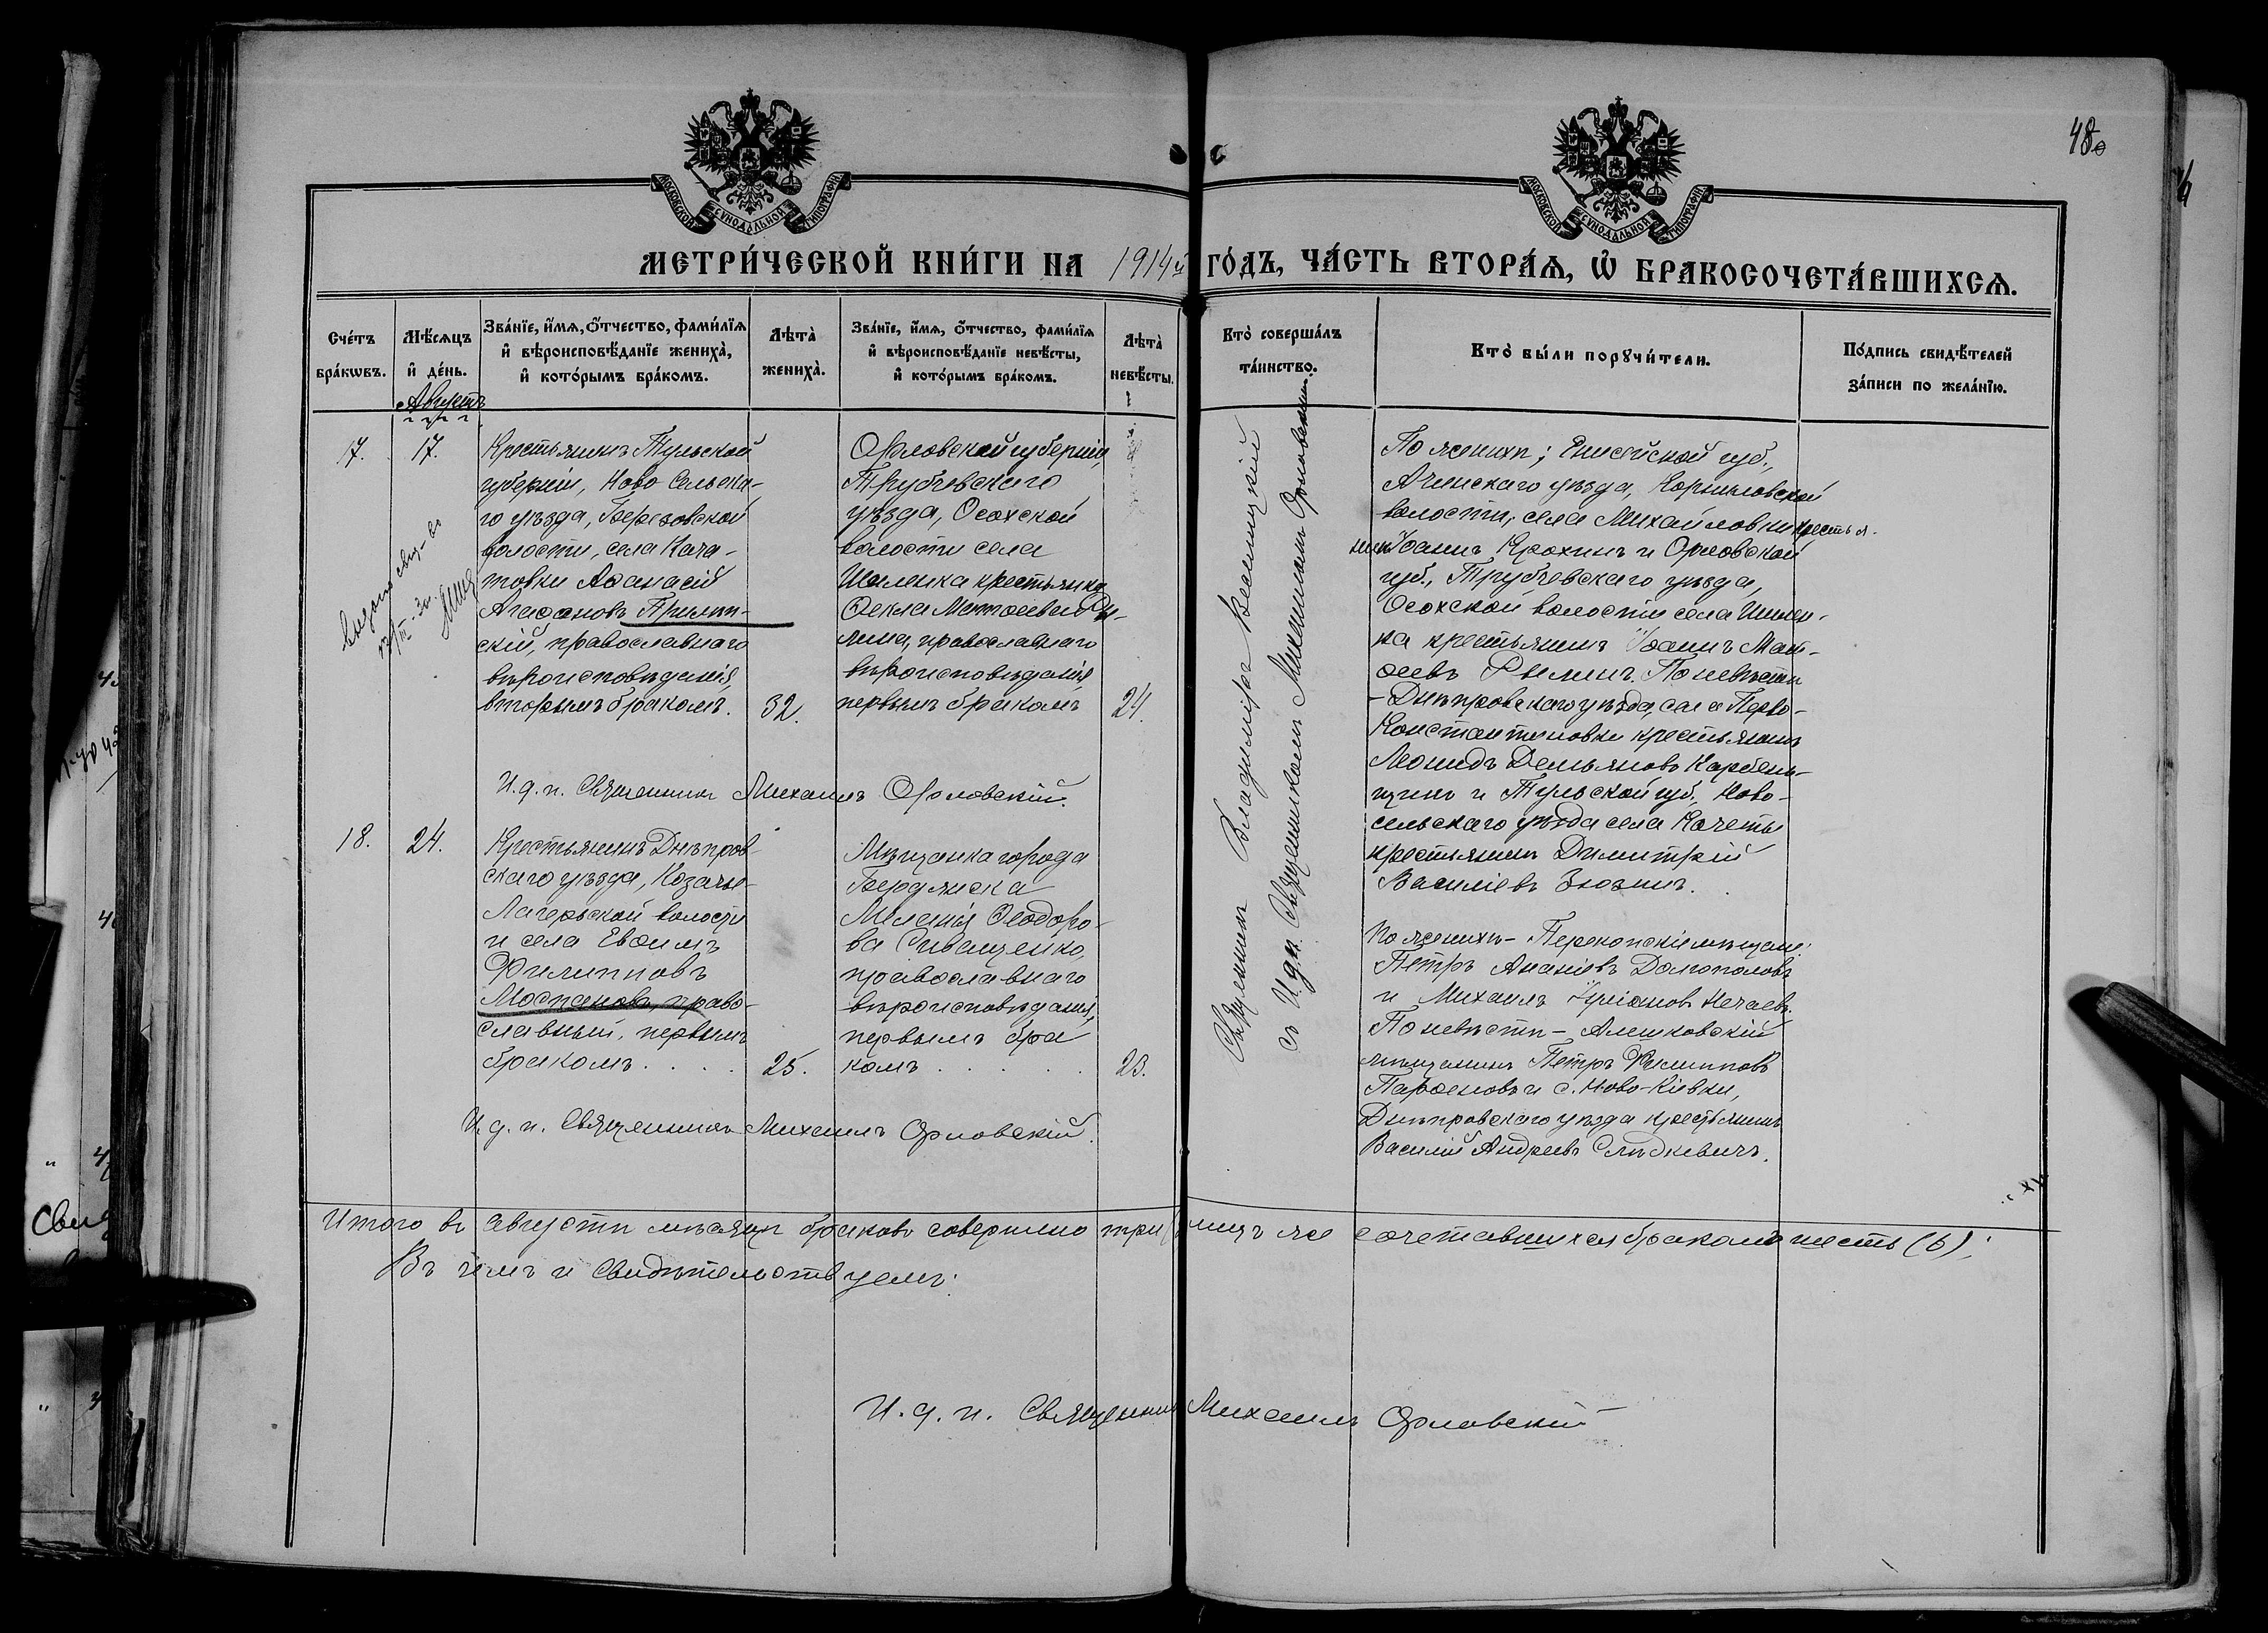 48
МОСКОВСКОЙ СѴНОДАЛЬНОЙ ТИПОГРАФІИ
МОСКОВСКОЙ СѴНОДАЛЬНОЙ ТИПОГРАФІИ
МЕТРИ́ЧЕСКОЙ КНИ́ГИ НА 1914й ГО́ДЪ, ЧА́СТЬ ВТОРА́Я, Ѡ БРАКОСОЧЕТА́ВШИХСЯ.
Сче́тъ бра́кѡвъ.
Мѣ́сяцъ и де́нь.
Зва́нїе, и́мя, о́тчество, фами́лїя и вѣроисповѣ́данїе жениха̀, и кото́рымъ бра́комъ.
Лѣта̀ жениха̀.
Зва́нїе, и́мя, о́тчество, фами́лїя и вѣроисповѣ́данїе невѣ́сты, и кото́рымъ бра́комъ.
Лѣта̀ невѣ́сты.
Кто̀ соверша́лъ та́инство.
Кто̀ бы́ли порꙋчи́тели.
По́дпись свидѣ́телей за́писи по жела́нїю.
Августъ
17.
17.
Крестьянинъ Тульской
губерніи, Ново Сельска-
го уѣзда, Березовской
волости, села Коча-
товки Аѳанасій
Агаѳоновъ
скій, православнаго
вѣроисповѣданія,
вторымъ бракомъ.
32.
Орловской губерніи,
Трубчевскаго
уѣзда, Осохской
волости села
крестьянка
Ѳекла Матѳеева
мина, православнаго
вѣроисповѣданія,
первымъ бракомъ
24.
Священникъ Владиміръ
съ И.д.п. Священникомъ Михаиломъ Орловскимъ
По женихѣ; Енисейской губ.,
Ачинскаго уѣзда, Корниловской
волости, села Михайловки крестья-
нинъ Іоаннъ Ерохинъ и Орловской
губ., Трубчевскаго уѣзда,
Осохской волости села
ка крестьянинъ Іоаннъ Мат-
ѳеевъ По невѣстѣ
- Днѣпровскаго уѣзда, села Перво-
Константиновки крестьянинъ
Леонидъ Демьяновъ
и Тульской губ., Ново-
сельскаго уѣзда села Кочеты
крестьянинъ Димитрій
Василіевъ Зюзинъ.
И.д.п. Священникъ Михаилъ Орловскій.
18.
24.
Крестьянинъ Днѣпров-
скаго уѣзда, Козачье-
Лагерьской волости
и села Евѳимъ
Филипповъ
Моспановъ, право-
славный, первымъ
бракомъ . . . .
25.
Мѣщанка города
Бердянска
Меланія Ѳеодоро-
ва Сиващенко,
православнаго
вѣроисповѣданія,
первымъ бра
комъ . . . . .
23.
По женихѣ - Перекопскіе мѣщане:
Петръ Ананіевъ Долгополовъ
и Михаилъ Нечаевъ.
По невѣстѣ - Алешковскій
мѣщанинъ Петръ Филипповъ
Парѳеновъ и с. Ново-Кіевки,
Днѣпровскаго уѣзда крестьянинъ
Василій Андреевъ
И.д.п. Священникъ Михаилъ Орловскій.
Итого въ августѣ мѣсяцѣ браковъ совершено три лицъ же сочетавшихся бракомъ шесть (6);
Въ чемъ и свидѣтельствуемъ:
И.д.п. Священникъ Михаилъ Орловскій